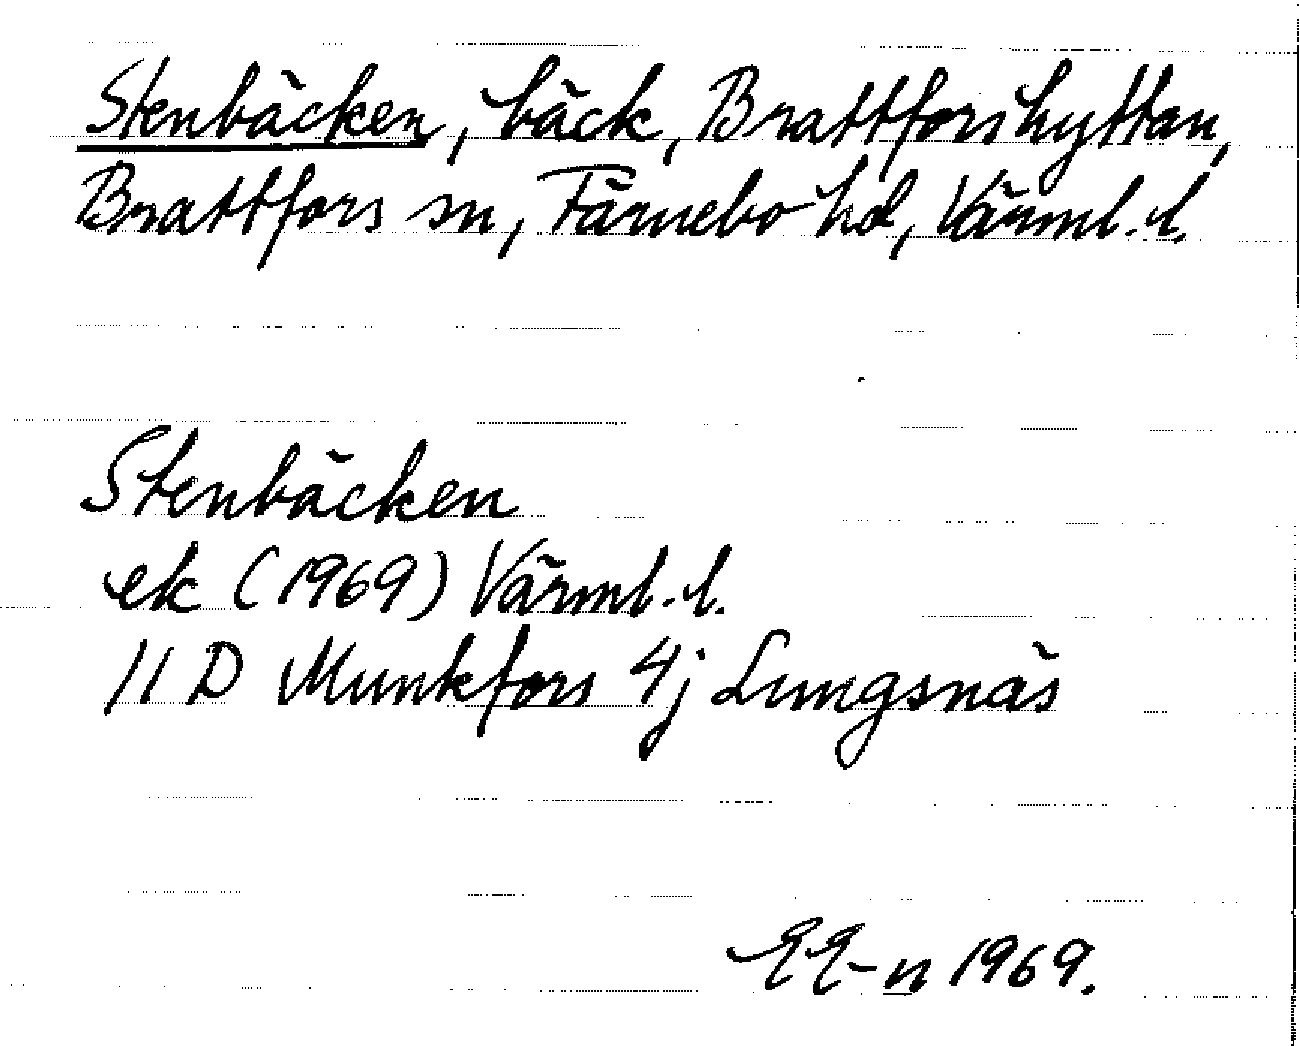 Stenbäcken, bäck, Brattforshyttan,
Brattfors sn, Färnebo hd, Värml. l.
Stenbäcken
ek (1969) Värml. l.
11 D Munkfors 4j Lungsnäs
EE-n 1969.